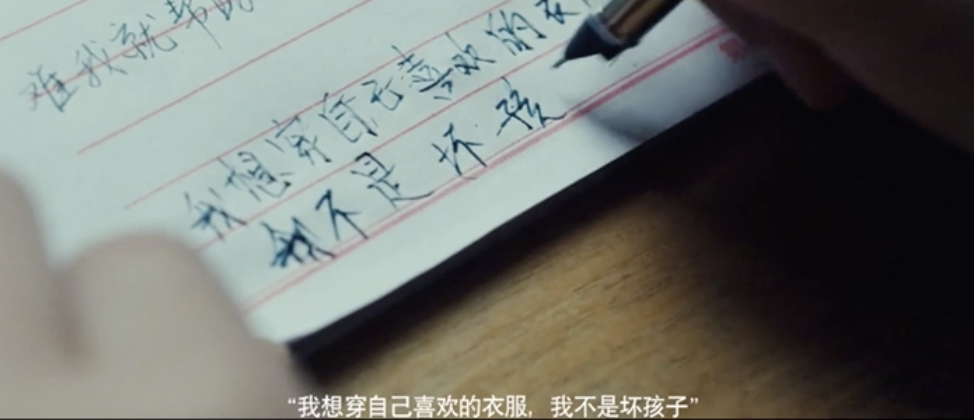 难我就帮
我想穿自己喜欢的衣
我不是坏孩
“我想穿自己喜欢的衣服，我不是坏孩子”